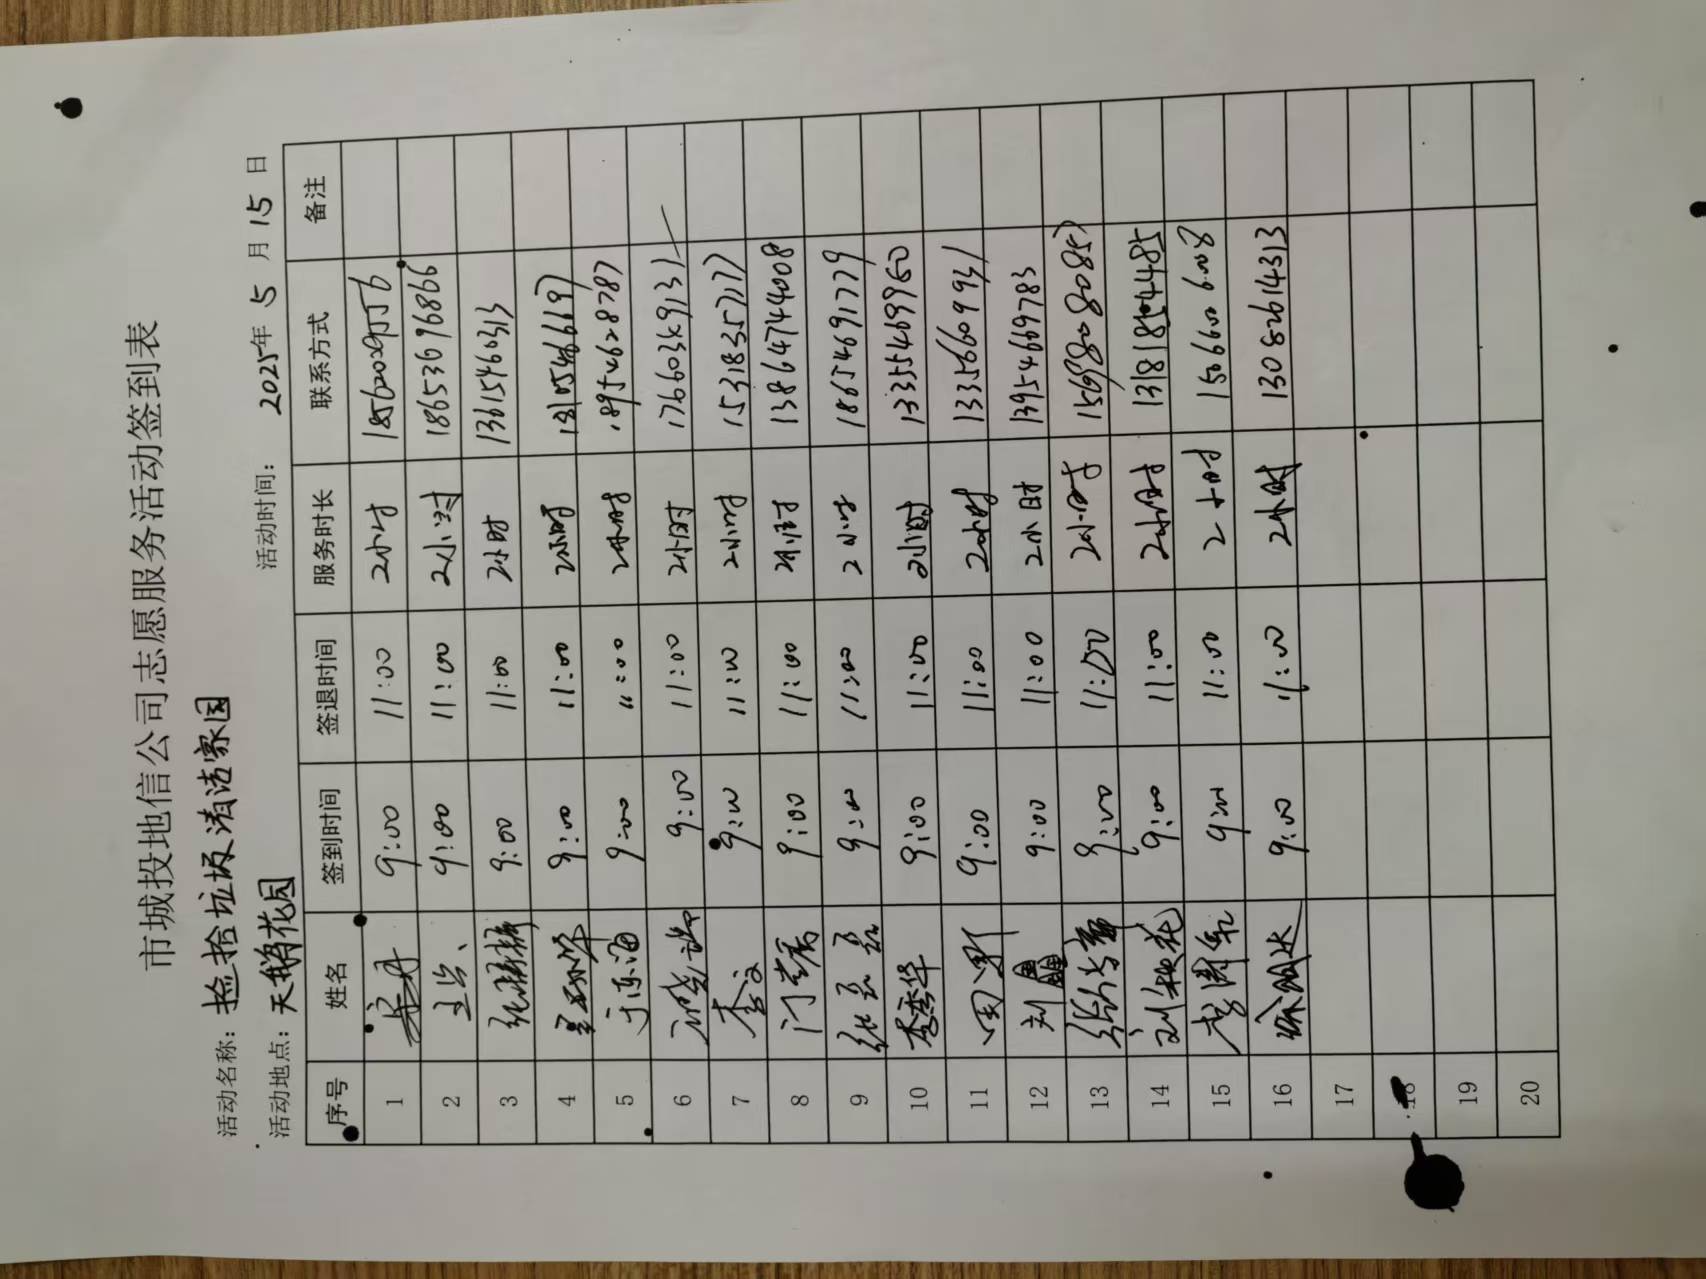 市城投地信公司志愿服务活动签到表
活动名称：捡拾垃圾清洁家园
活动地点：天鹅花园 活动时间：2025年5月15日
序号 姓名 签到时间 签退时间 服务时长 联系方式 备注
1 9:00 11:00 2小时
2 9:00 11:00 2小时 18653696866
3 9:00 11:00 2小时
4 9:00 11:00 2小时
5 于东海 9:00 11:00 2小时 18954628787
6 9:00 11:00 2小时
7 李文 9:00 11:00 2小时 15318357177
8 9:00 11:00 2小时 13864744008
9 张磊磊 9:00 11:00 2小时 18654691779
10 李季华 9:00 11:00 2小时 13355469960
11 田野 9:00 11:00 2小时 13356609931
12 刘鑫 9:00 11:00 2小时 13954669783
13 9:00 11:00 2小时
14 刘秋花 9:00 11:00 2小时 13181854485
15 9:00 11:00 2小时
16 9:00 11:00 2小时 13082614313
17
18
19
20